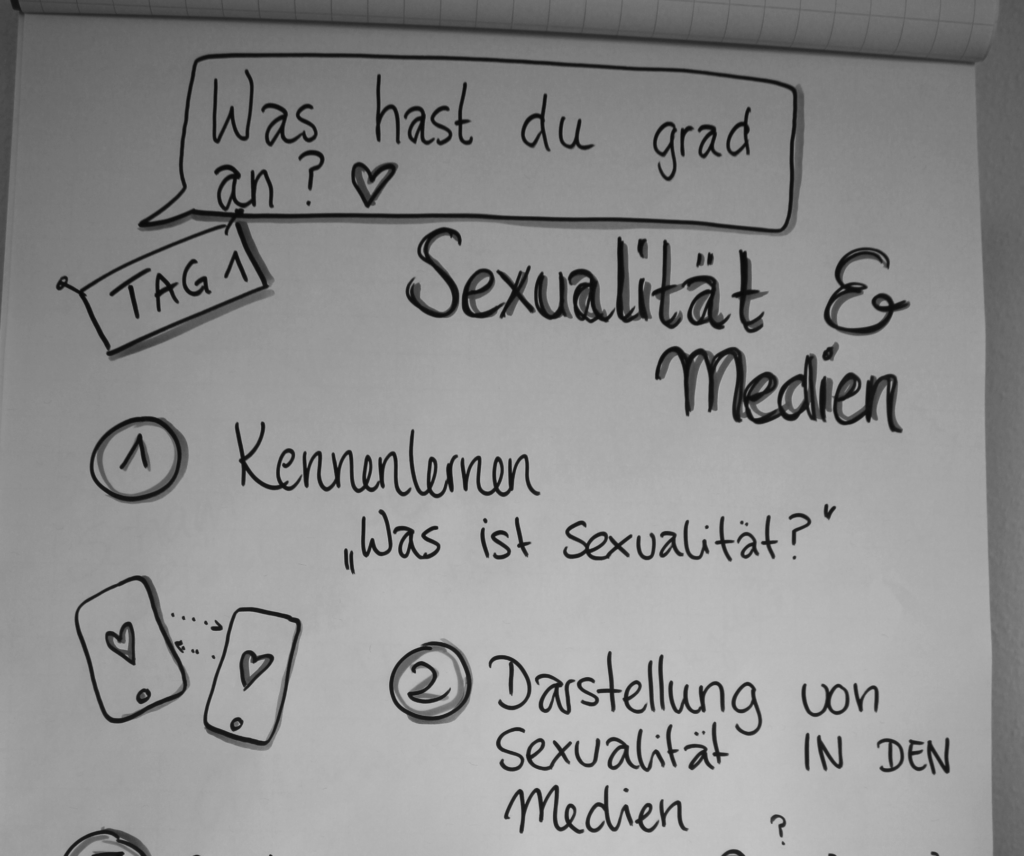 Was hast du grad
an? ♡
TAG 1
Sexualität &
Medien
1 Kennenlernen
„Was ist Sexualität?“
2 Darstellung von
Sexualität IN DEN
Medien
?